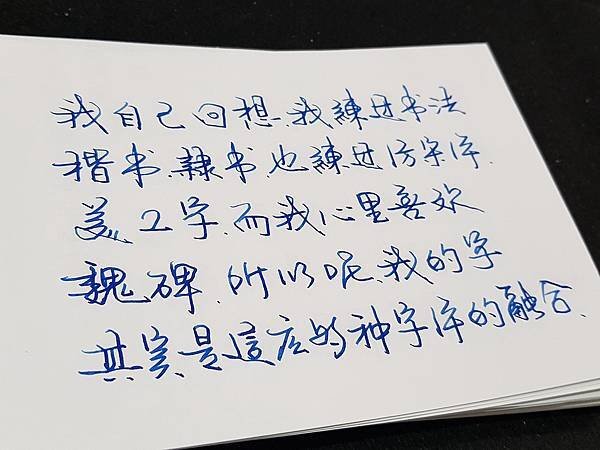 我自己回想、我練过书法
楷书、隸书、也練过仿宋体、
美工字、而我心里喜欢
魏碑、所以呢、我的字
其实是這么多种字体的融合、